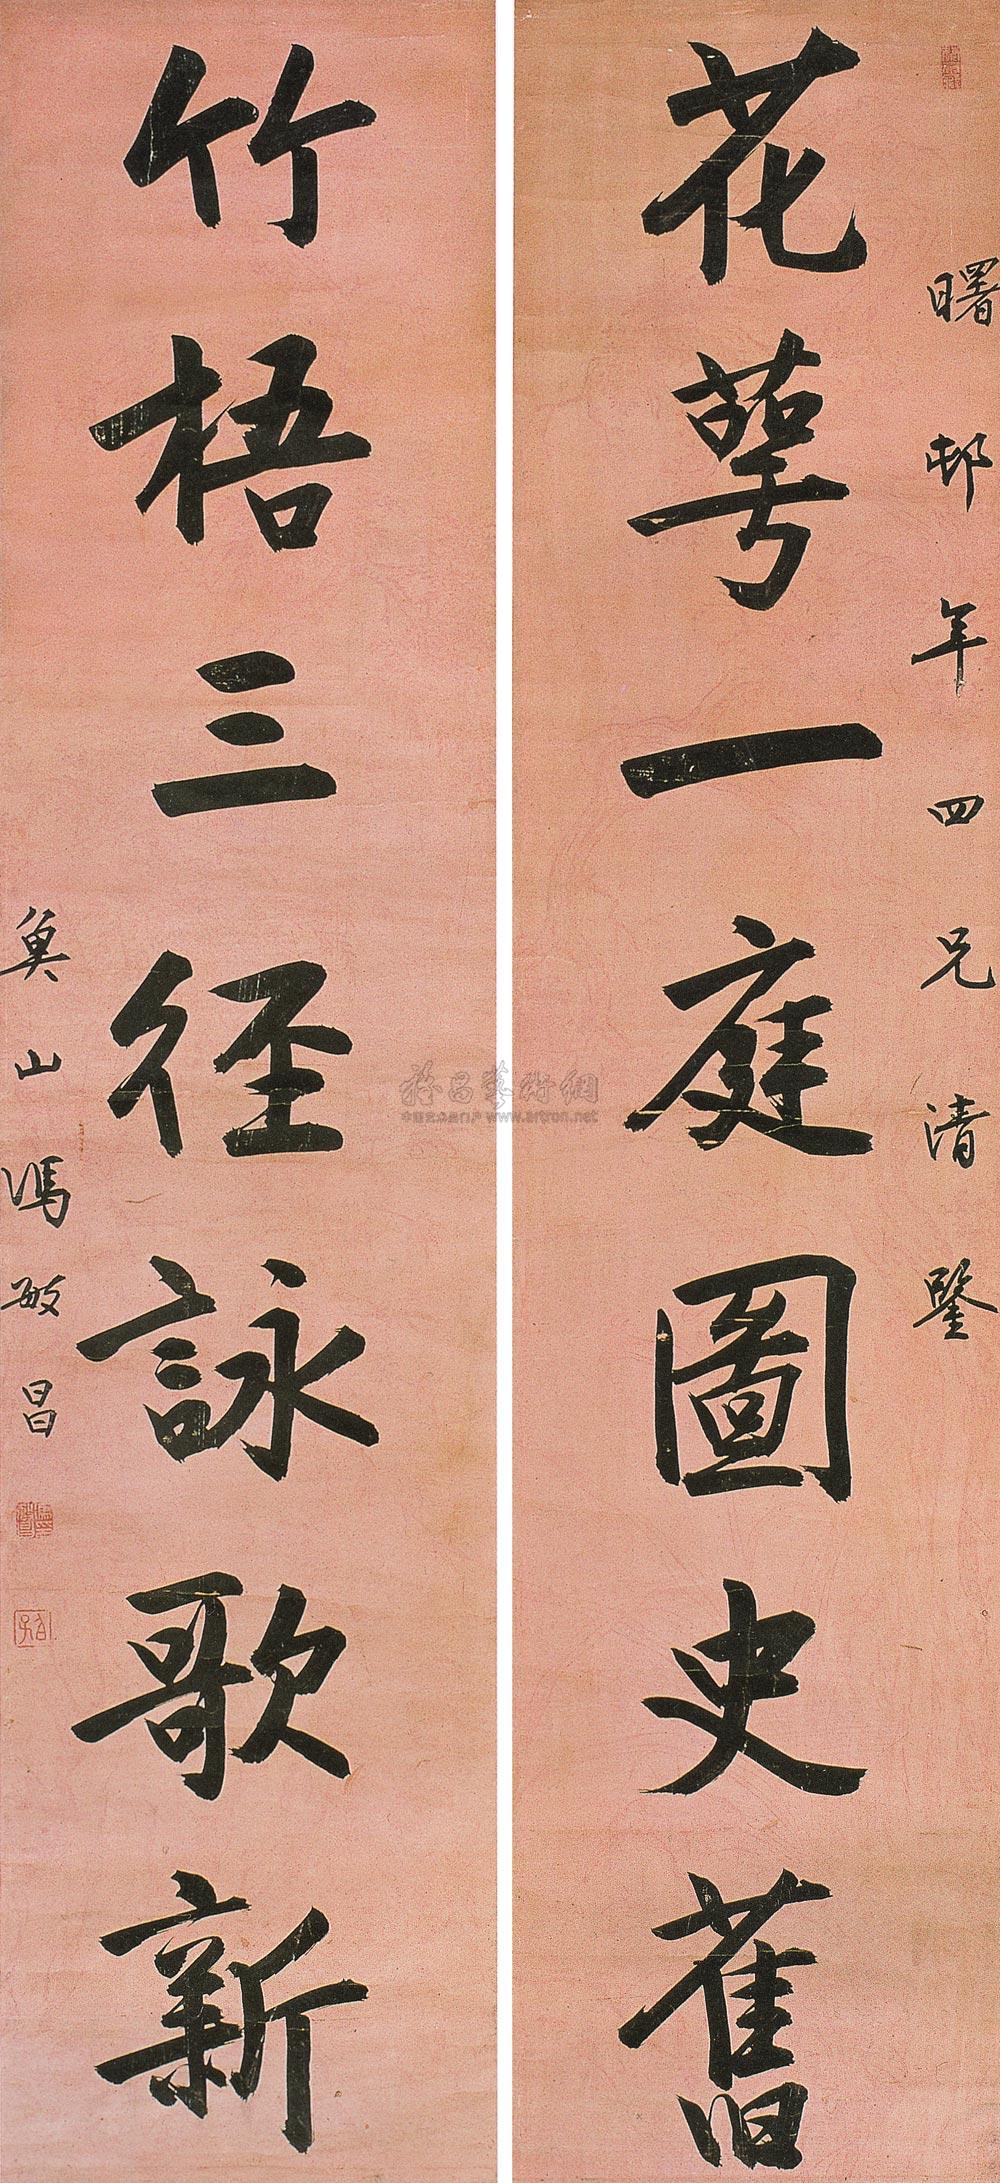 曙邨年四兄清鑒
花萼一庭圖史舊
竹梧三徑詠歌新
魚山馮敏昌
雅昌藝術網
中国艺术品门户 www.artron.net